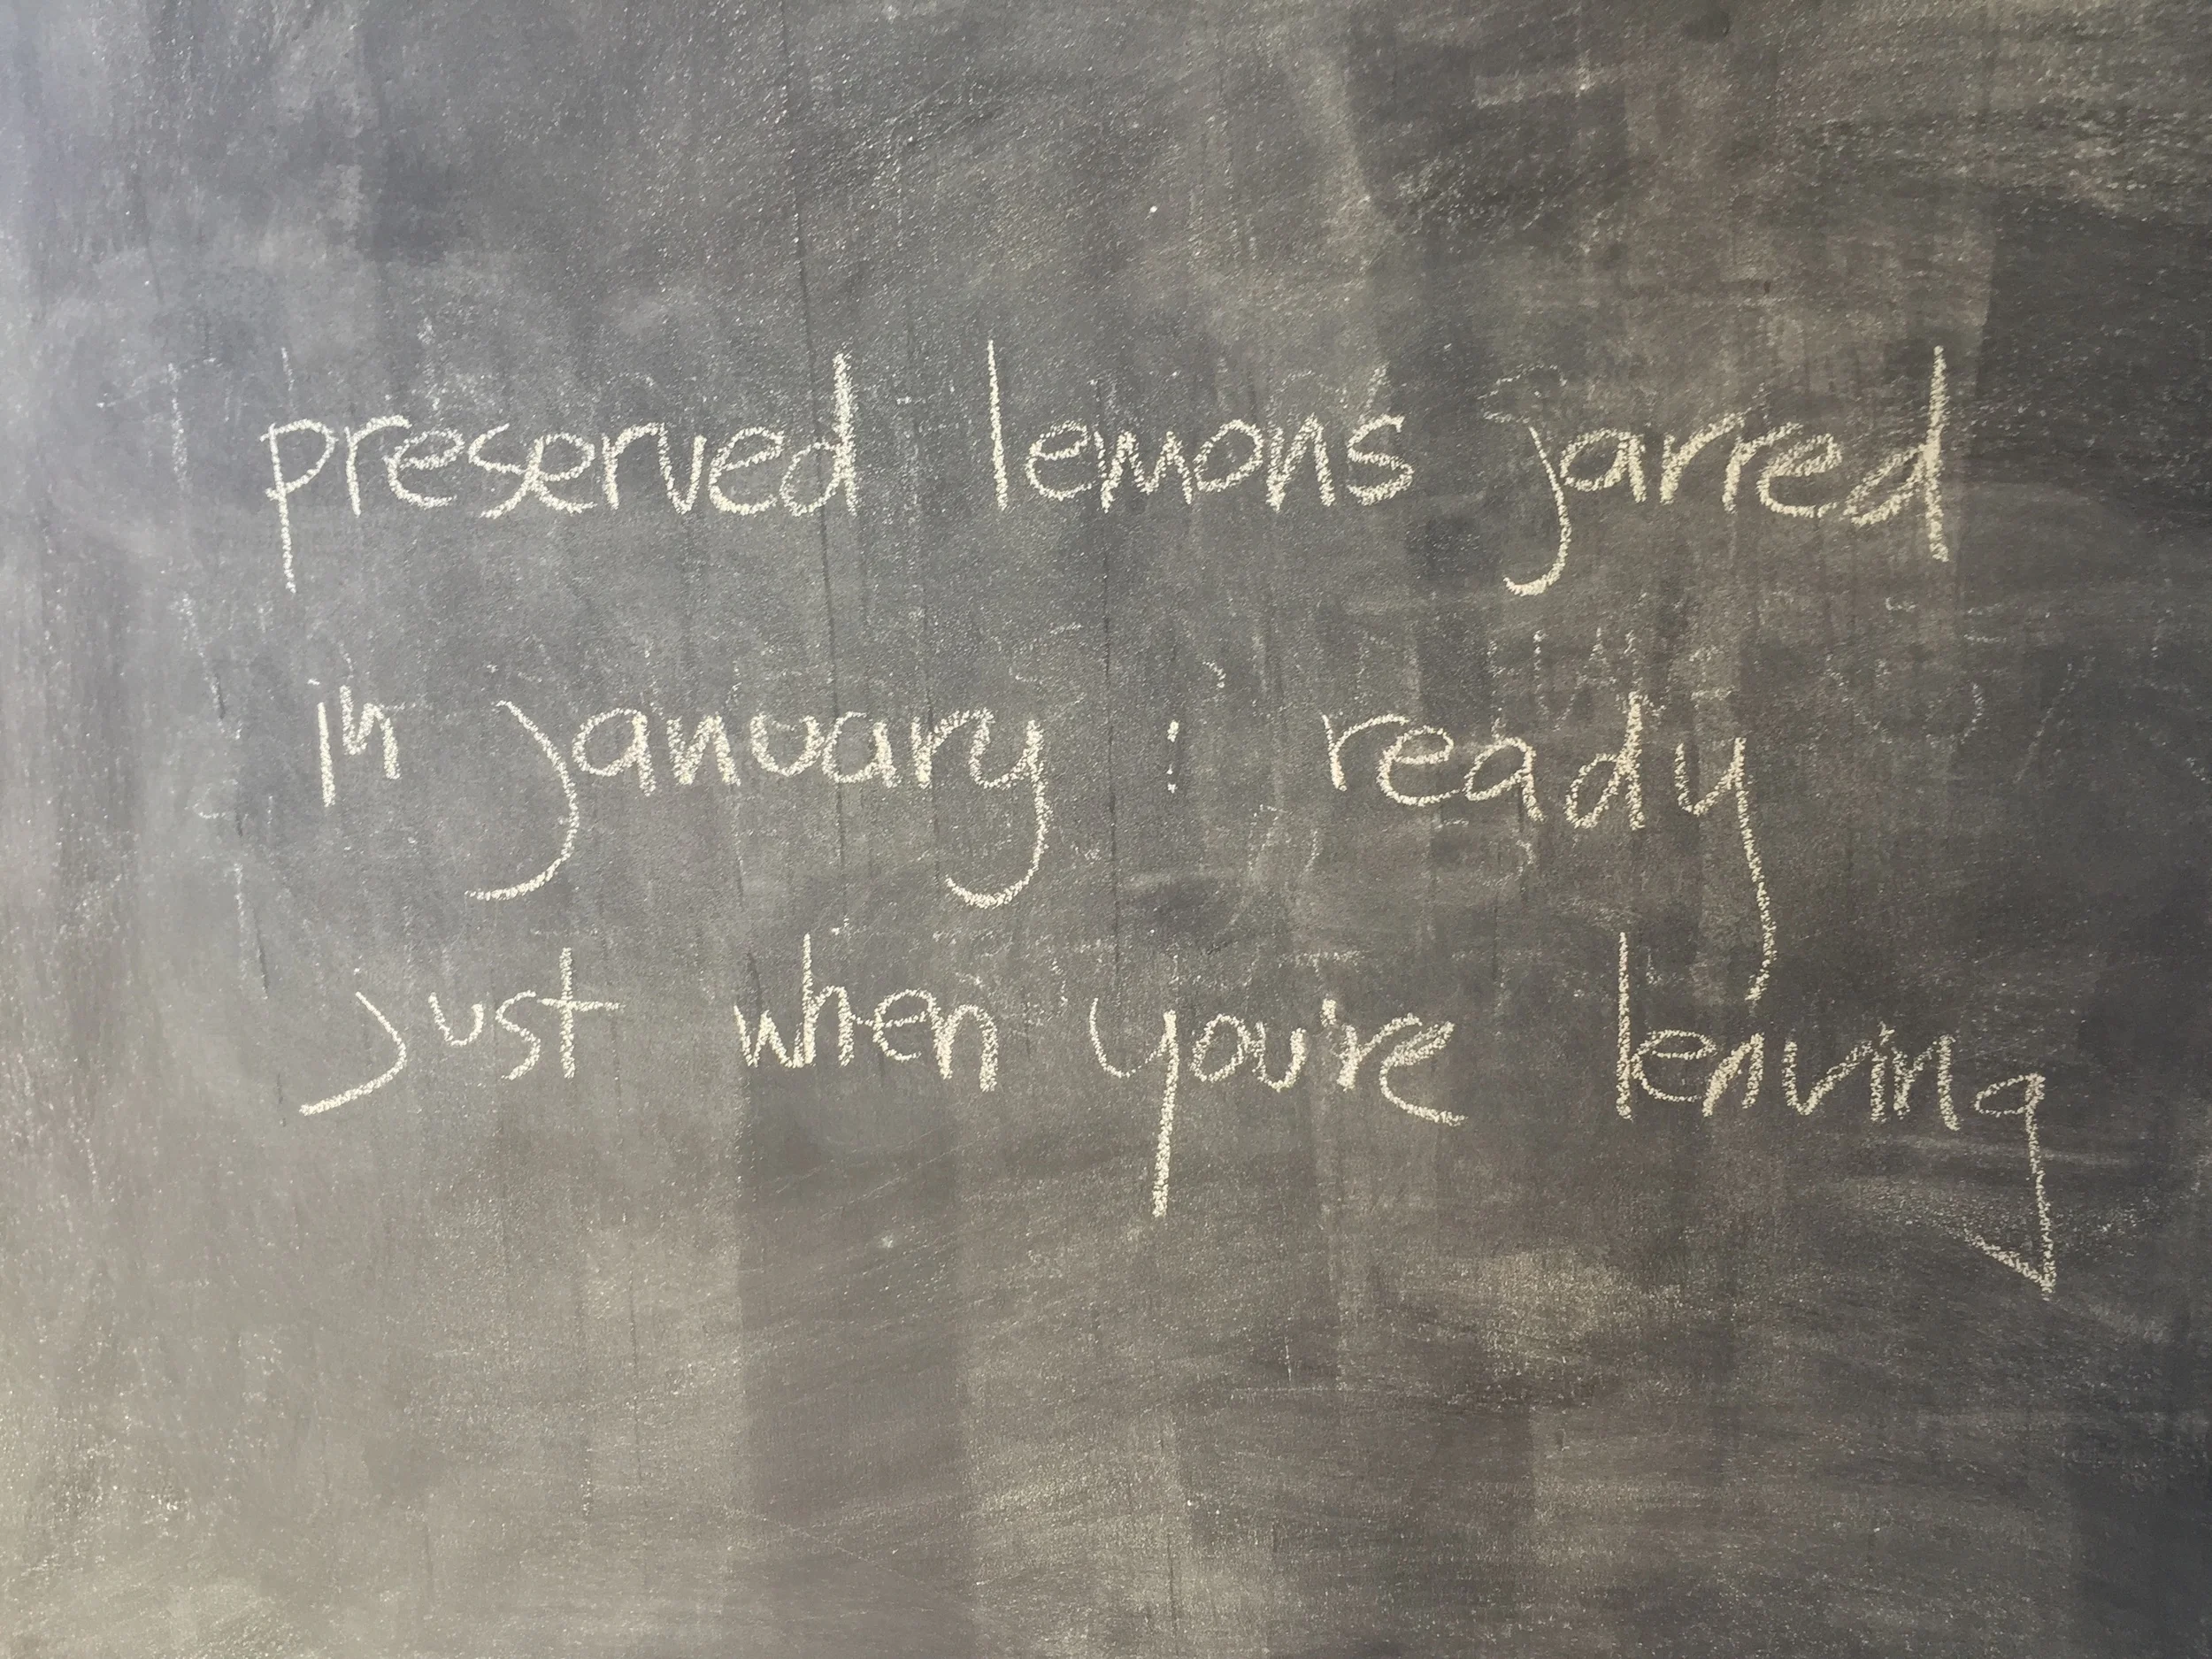 preserved lemons jarred
in january : ready
just when you're leaving